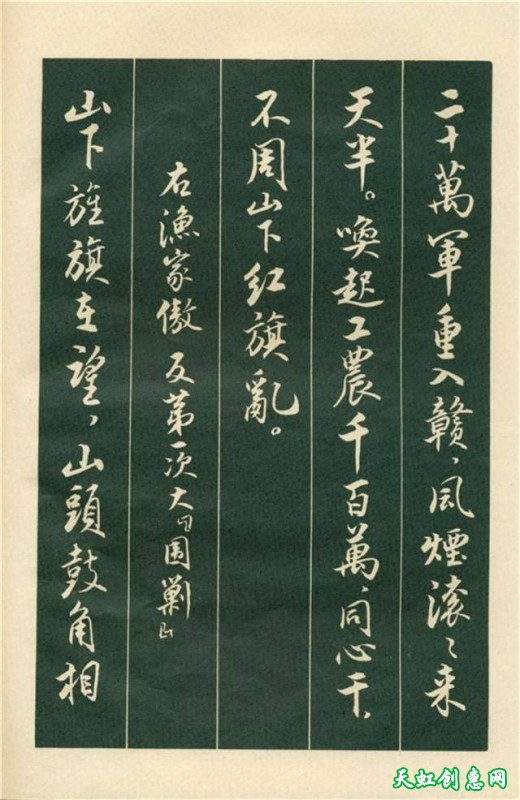 二十萬軍重入贛、風煙滾々来
天半。喚起工農千百萬、同心干、
不周山下紅旗亂。
右漁家傲 反第一次大「围剿」
山下旌旗在望、山頭鼓角相
天虹创惠网